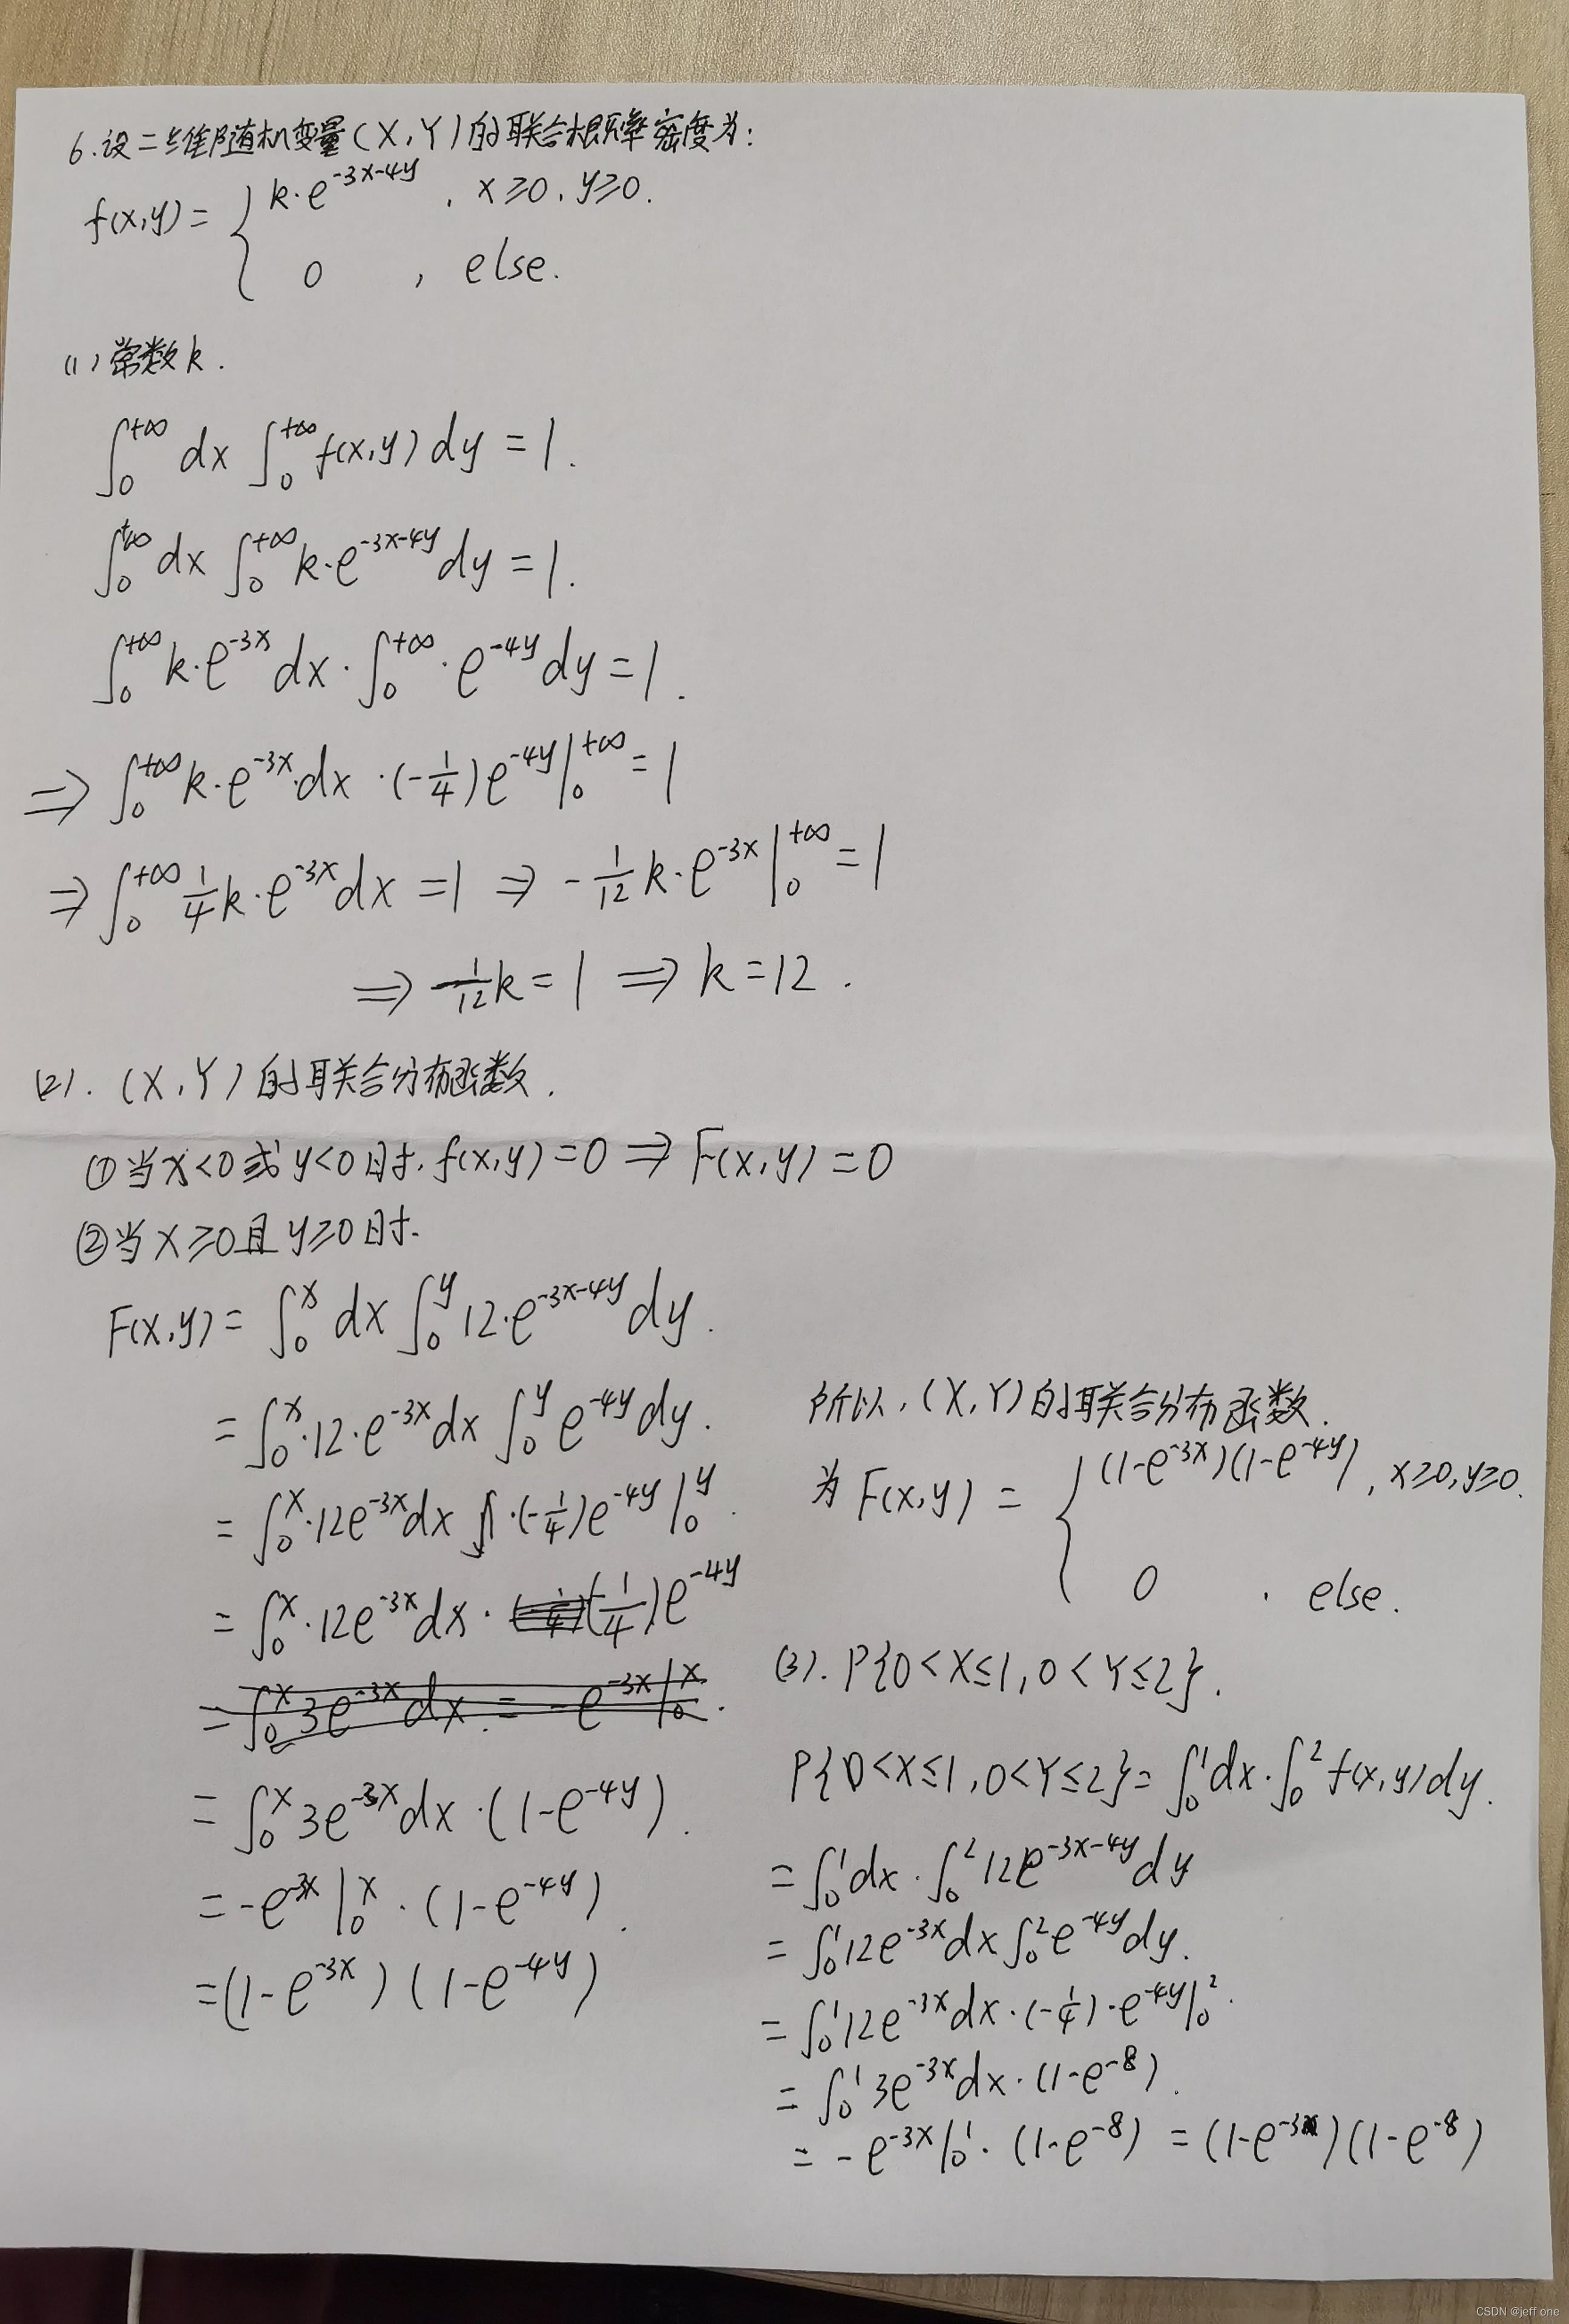 6.设二维随机变量(X,Y)的联合概率密度为:
f(x,y)= { k·e^{-3x-4y} , x≥0, y≥0.
0 , else.
(1) 常数k.
∫_0^{+∞} dx ∫_0^{+∞} f(x,y) dy = 1.
∫_0^{+∞} dx ∫_0^{+∞} k·e^{-3x-4y} dy = 1.
∫_0^{+∞} k·e^{-3x} dx · ∫_0^{+∞} · e^{-4y} dy = 1.
⇒ ∫_0^{+∞} k·e^{-3x}·dx ·(-1/4)e^{-4y}|_0^{+∞} = 1
⇒ ∫_0^{+∞} 1/4 k·e^{-3x} dx = 1 ⇒ -1/12 k·e^{-3x}|_0^{+∞} = 1
⇒ 1/12 k = 1 ⇒ k = 12.
(2). (X,Y)的联合分布函数.
①当x<0或y<0时, f(x,y)=0 ⇒ F(x,y)=0
②当x≥0且y≥0时.
F(x,y) = ∫_0^x dx ∫_0^y 12·e^{-3x-4y} dy.
= ∫_0^x ·12·e^{-3x} dx ∫_0^y e^{-4y} dy.
= ∫_0^x ·12e^{-3x} dx ·(-1/4)e^{-4y}|_0^y.
= ∫_0^x ·12e^{-3x} dx · (1/4)e^{-4y}
= ∫_0^x 3e^{-3x} dx = -e^{-3x}|_0^x.
= ∫_0^x 3e^{-3x} dx ·(1-e^{-4y}).
= -e^{-3x}|_0^x ·(1-e^{-4y}).
= (1-e^{-3x})(1-e^{-4y})
所以, (X,Y)的联合分布函数.
为 F(x,y) = { (1-e^{-3x})(1-e^{-4y}), x≥0, y≥0.
0 , else.
(3). P{0<X≤1, 0<Y≤2}.
P{0<X≤1, 0<Y≤2} = ∫_0^1 dx·∫_0^2 f(x,y) dy.
= ∫_0^1 dx · ∫_0^2 12e^{-3x-4y} dy
= ∫_0^1 12e^{-3x} dx ∫_0^2 e^{-4y} dy.
= ∫_0^1 12e^{-3x} dx·(-1/4)·e^{-4y}|_0^2.
= ∫_0^1 3e^{-3x} dx·(1-e^{-8}).
= -e^{-3x}|_0^1·(1-e^{-8}) = (1-e^{-3})(1-e^{-8})
CSDN @jeff one